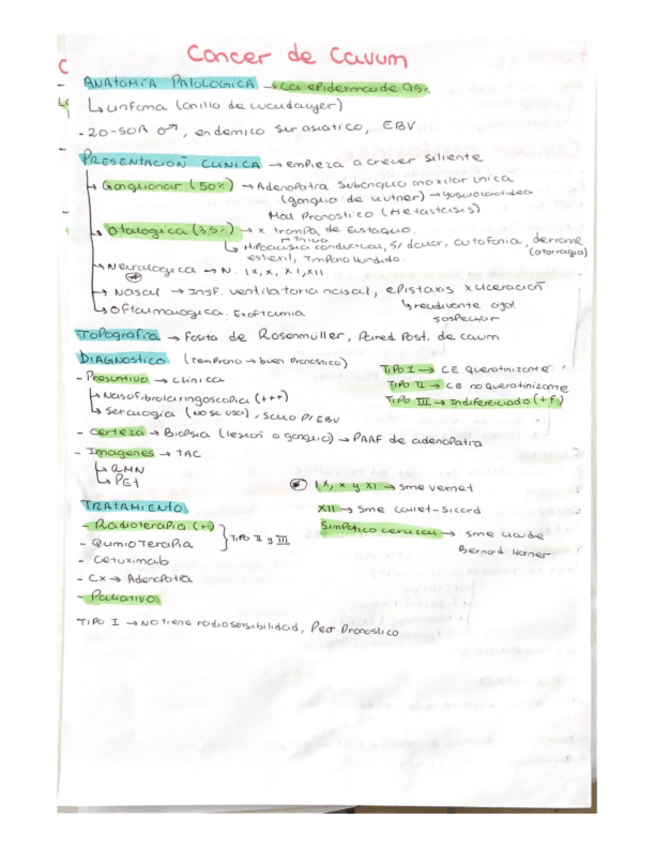 Cancer de Cavum
ANATOMIA PATOLOGICA → ca epidermoide 95%
↳ Linfoma (anillo de waldayer)
- 20-50A ♂, endemico sur asiatico, EBV
PRESENTACION CLINICA → empieza a crecer siliente
→ Ganglionar (50%) → Adenopatia Subangulo maxilar unica
(ganglio de kutner) → yugulocarotidea
Mal Pronostico (Metastasis)
→ Otologica (35%) → x trompa de Eustaquio
↳ Hipoacusia conductiva, s/ dolor, autofonia, derrame
esteril, Timpano hundido. (otorragia)
→ Neurologica → N. IX, X, XI, XII
→ Nasal → Insf. ventilatoria nasal, epistaxis x ulceración
↳ recidivante
sospechar
↳ Oftalmologica: Exoftalmia
Topografia → Fosita de Rosenmüller, Pared Post. de cavum
DIAGNOSTICO (Temprano → buen Pronostico)
- Presuntivo → Clinica
↳ Nasofibrolaringoscopia (+++)
↳ Serologia (no se usa), Solo P/ EBV
TIPO I → CE queratinizante
TIPO II → CE no queratinizante
TIPO III → Indiferenciado (+f)
- Certeza → Biopsia (lesion o ganglio) → PAAF de adenopatia
- Imagenes → TAC
↳ RMN
↳ PET
⊛ IX, X y XI → sme vernet
XII → Sme collet-Siccard
Simpatico cervical → sme claude
Bernard Horner
TRATAMIENTO
- Radioterapia (+)
- Quimioterapia } Tipo II y III
- Cetuximab
- Cx → Adenopatia
- Paliativo
TIPO I → No tiene radiosensibilidad, Peor Pronostico